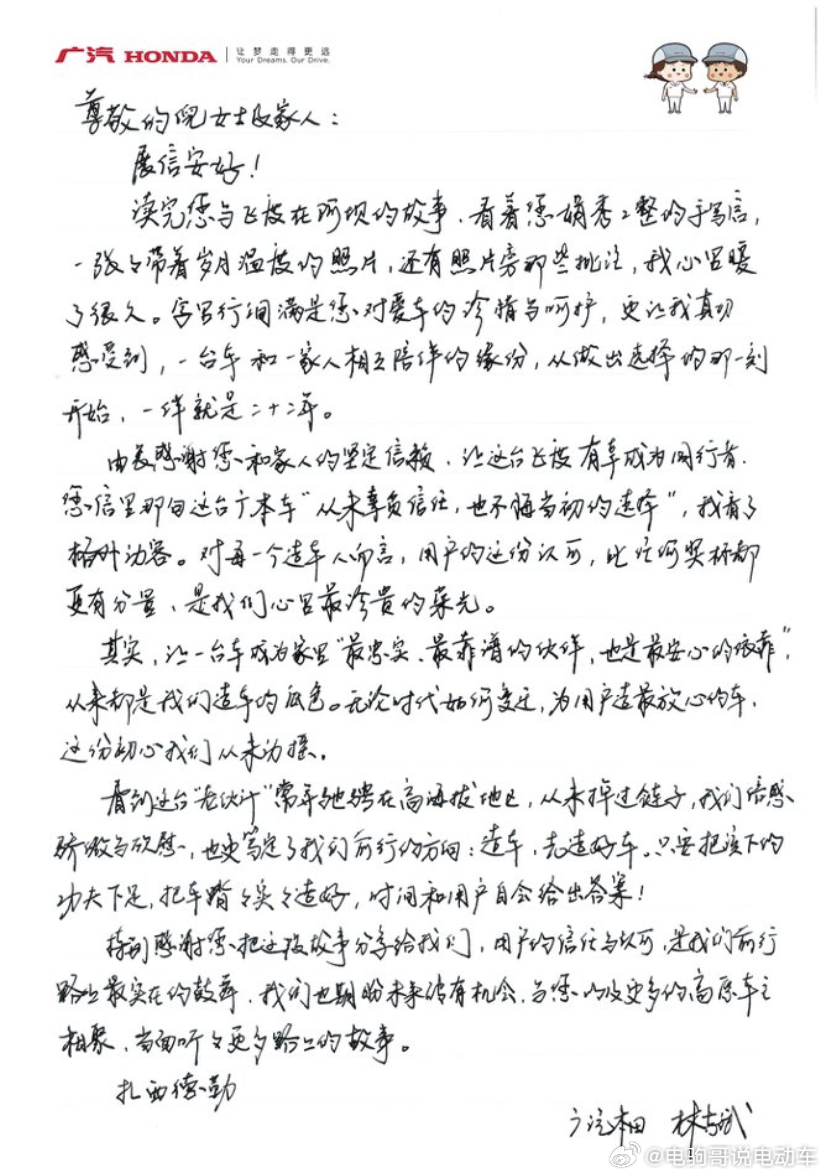 广汽 HONDA 让梦走得更远
Your Dreams. Our Drive.
尊敬的倪女士及家人：
展信安好！
读完您与飞度在阿坝的故事、看着您娟秀工整的手写信，
一张々带着岁月温度的照片，还有照片旁那些批注，我心里暖
了很久。字里行间满是您对爱车的珍惜与呵护，更让我真切
感受到，一台车和一家人相互陪伴的缘份，从做出选择的那一刻
开始，一伴就是二十二年。
由衷感谢您和家人的坚定信赖，让这台飞度有幸成为同行者。
您信里那句这台广本车“从未辜负信任，也不悔当初的选择”，我看了
格外动容。对每一个造车人而言，用户的这份认可，比任何奖杯都
更有分量、是我们心里最珍贵的荣光。
其实，让一台车成为家里“最忠实、最靠谱的伙伴，也是最安心的依靠”，
从来都是我们造车的底色。无论时代如何变迁，为用户造最放心的车，
这份初心我们从未动摇。
看到这台“老伙计”常年驰骋在高海拔地区，从未掉过链子，我们倍感
骄傲与欣慰，也更笃定了我们前行的方向：造车，先造好车。只要把该下的
功夫下足，把车踏々实々造好，时间和用户自会给出答案！
特别感谢您把这段故事分享给我们，用户的信任与认可，是我们前行
路上最实在的鼓舞。我们也期盼未来能有机会，与您以及更多的高原车主
相聚，当面听々更多路上的故事。
扎西德勒
广汽本田
@电驹哥说电动车